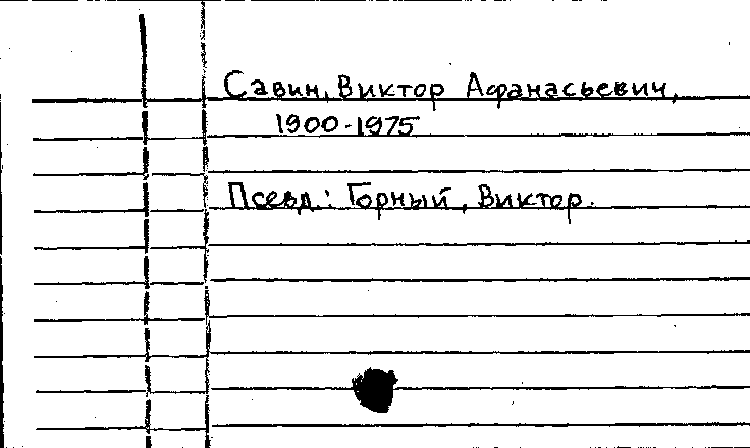 Савин, Виктор Афанасьевич,
1900-1975
Псевд.: Горный, Виктор.